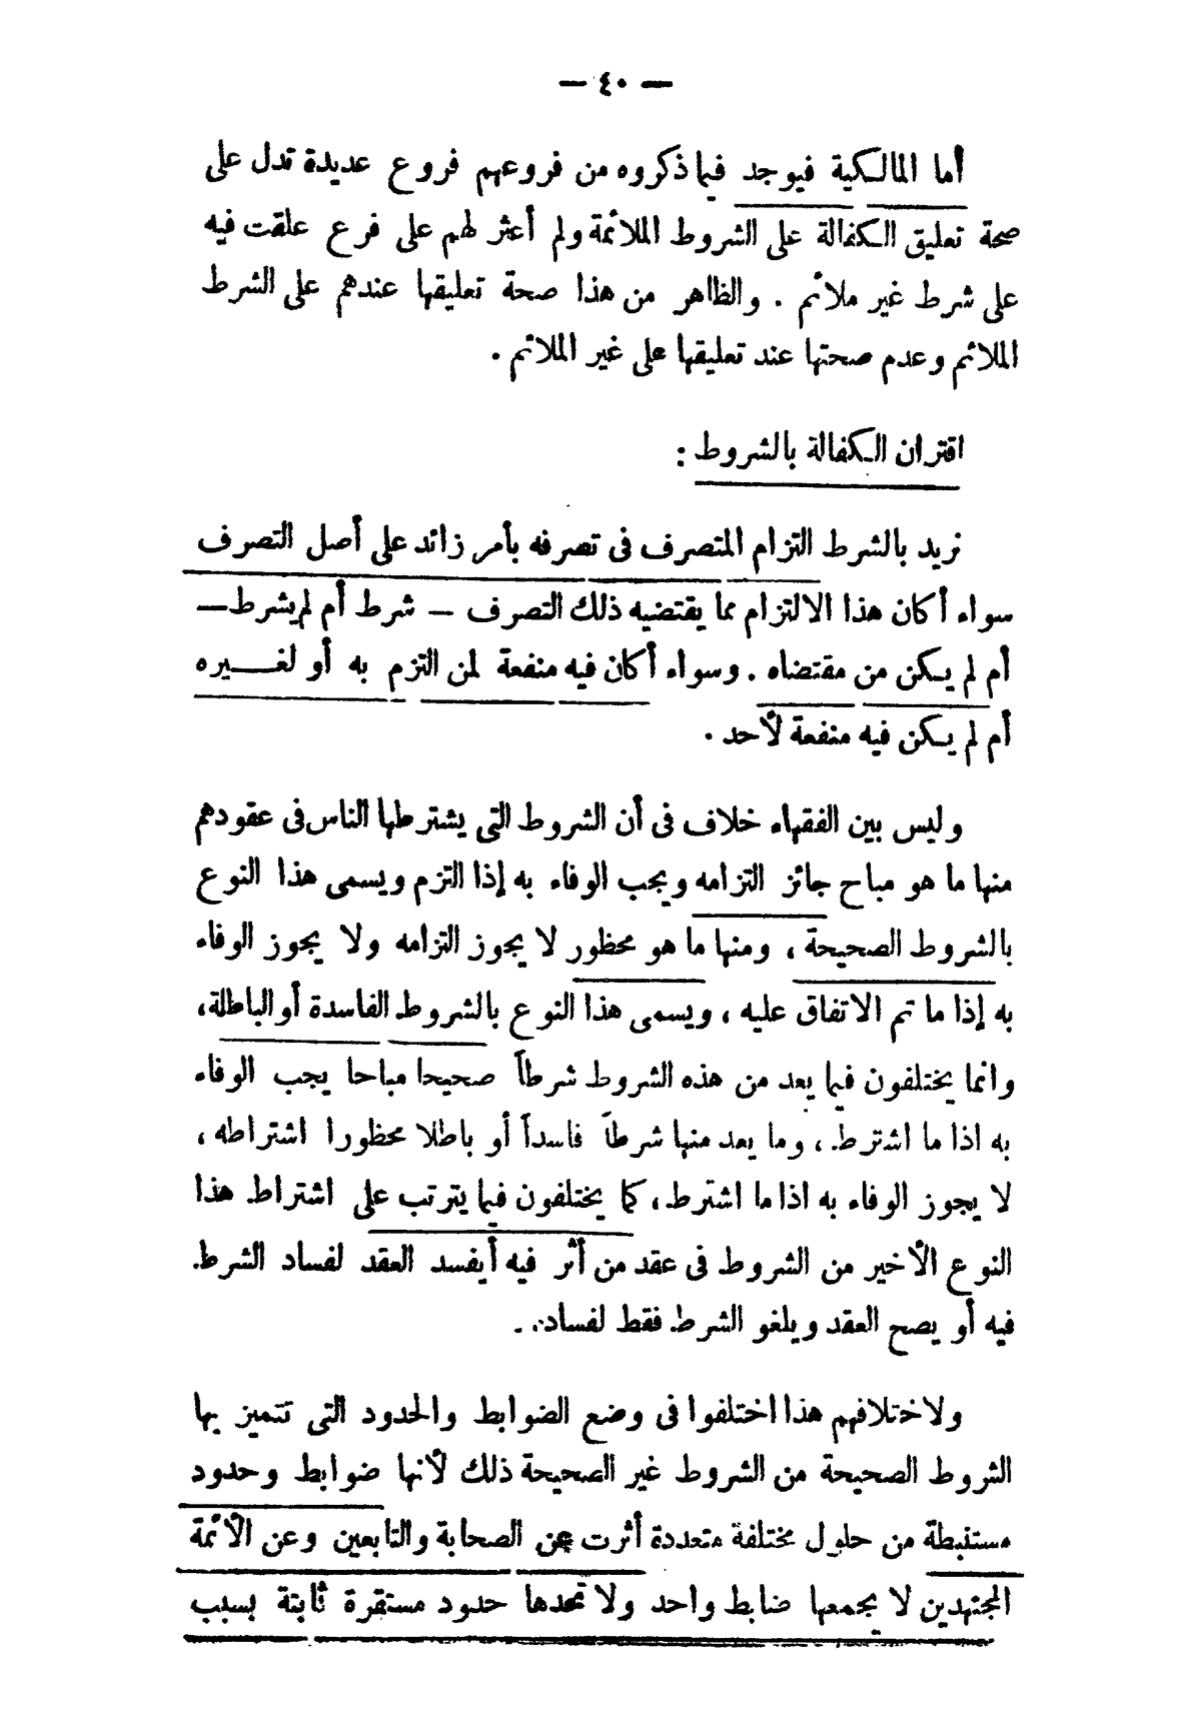 — ٤٠ —
أما المالكية فيوجد فيما ذكروه من فروعهم فروع عديدة تدل على
صحة تعليق الكفالة على الشروط الملائمة ولم أعثر لهم على فرع علقت فيه
على شرط غير ملائم . والظاهر من هذا صحة تعليقها عندهم على الشرط
الملائم وعدم صحتها عند تعليقها على غير الملائم .
اقتران الكفالة بالشروط :
نريد بالشرط التزام المتصرف فى تصرفه بأمر زائد على أصل التصرف
سواء أكان هذا الالتزام مما يقتضيه ذلك التصرف — شرط أم لم يشرط —
أم لم يكن من مقتضاه . وسواء أكان فيه منفعة لمن التزم به أو لغيره
أم لم يكن فيه منفعة لأحد .
وليس بين الفقهاء خلاف فى أن الشروط التى يشترطها الناس فى عقودهم
منها ما هو مباح جائز التزامه ويجب الوفاء به إذا التزم ويسمى هذا النوع
بالشروط الصحيحة ، ومنها ما هو محظور لا يجوز التزامه ولا يجوز الوفاء
به إذا ما تم الاتفاق عليه ، ويسمى هذا النوع بالشروط الفاسدة أو الباطلة،
وانما يختلفون فيما يعد من هذه الشروط شرطاً صحيحا مباحا يجب الوفاء
به اذا ما اشترط ، وما يعد منها شرطاً فاسداً أو باطلا محظورا اشتراطه ،
لا يجوز الوفاء به اذا ما اشترط ، كما يختلفون فيما يترتب على اشتراط هذا
النوع الأخير من الشروط فى عقد من أثر فيه أيفسد العقد لفساد الشرط
فيه أو يصح العقد ويلغو الشرط فقط لفساده .
ولاختلافهم هذا اختلفوا فى وضع الضوابط والحدود التى تتميز بها
الشروط الصحيحة من الشروط غير الصحيحة ذلك لأنها ضوابط وحدود
مستنبطة من حلول مختلفة متعددة أثرت عن الصحابة والتابعين وعن الأئمة
المجتهدين لا يجمعها ضابط واحد ولا تحدها حدود مستقرة ثابتة بسبب